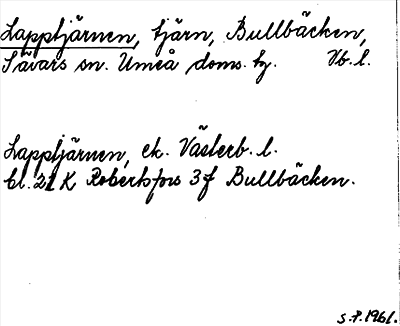 Lapptjärnen, tjärn, Bullbäcken,
Sävars sn. Umeå doms. tg. Vb. l.
Lapptjärnen, ek. Västerb. l.
bl. 21 K Robertsfors 3f Bullbäcken.
S.P. 1961.